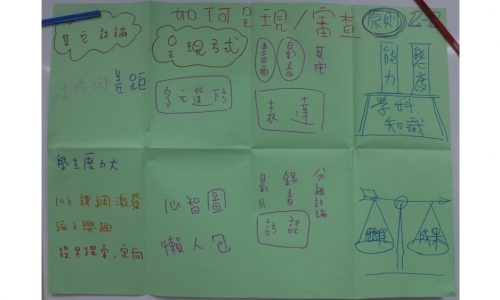 如何呈現/審查
原則
2-2
其它討論
城鄉差距
呈現方式
多元選修
書面
影音
其它
表達
能力
態度
學科
知識
學生壓力大
108課綱激發
孩子興趣
提早探索、定向
心智圖
懶人包
影片
錄音
分組討論
訪談
歷程
成果